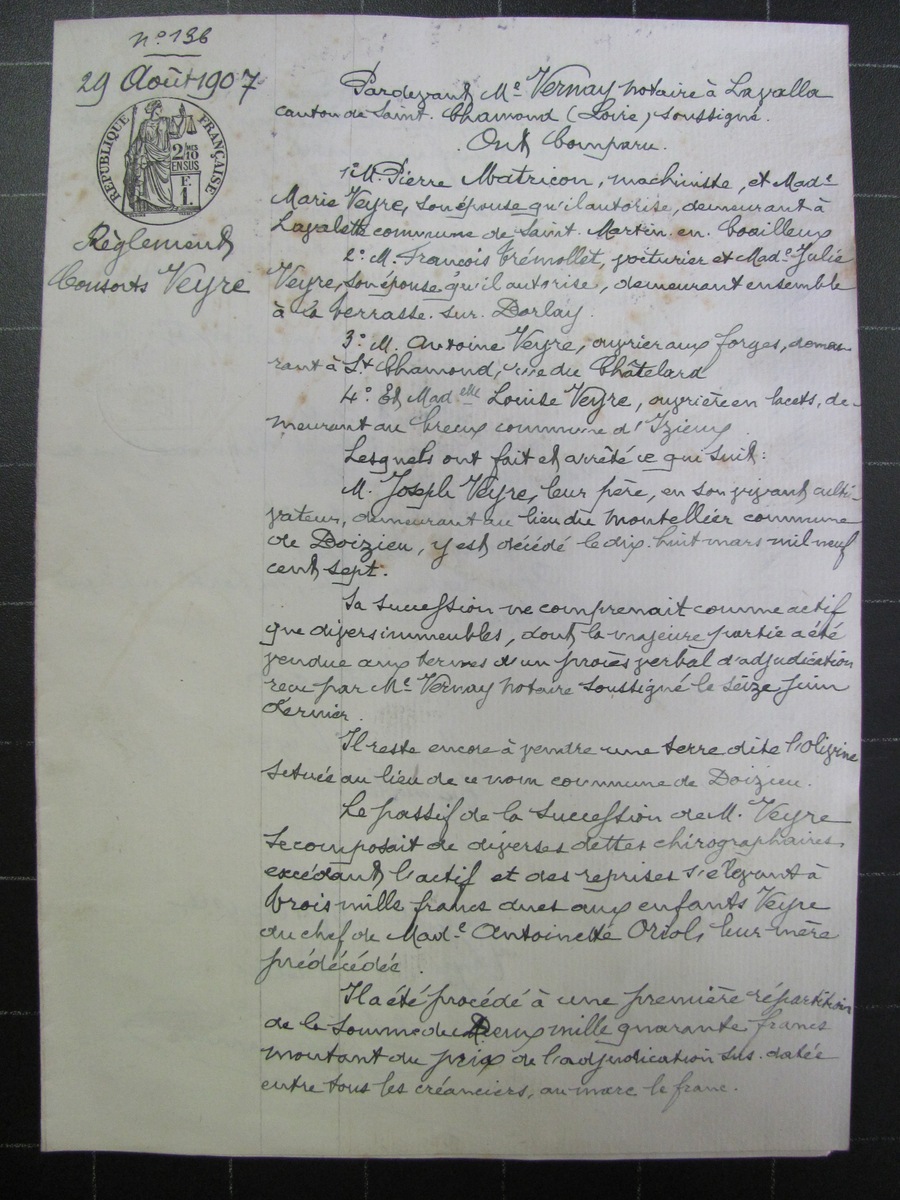 n° 136
29 Août 1907
RÉPUBLIQUE FRANÇAISE
2/10MES
EN SUS
F.
1.
Règlement
Consorts Veyre
Pardevant Me Vernay notaire à Lavalla
canton de Saint-Chamond (Loire) soussigné.
Ont Comparu.
1° M. Pierre Matricon, machiniste, et Made
Marie Veyre, son épouse qu'il autorise, demeurant à
Lavalette commune de Saint-Martin-en-Coailleux
2° M. François Trémollet, voiturier et Made Julie
Veyre, son épouse qu'il autorise, demeurant ensemble
à la Terrasse-sur-Dorlay.
3° M. Antoine Veyre, ouvrier aux forges, demeu-
rant à St Chamond, rue du Châtelard
4° Et Madelle Louise Veyre, ouvrière en lacets, de-
meurant au Creux commune d'Izieux.
Lesquels ont fait et arrêté ce qui suit :
M. Joseph Veyre, leur père, en son vivant culti-
vateur, demeurant au lieu du Montellier commune
de Doizieu, y est décédé le dix-huit mars mil neuf
cent sept.
Sa succession ne comprenait comme actif
que divers immeubles, dont la majeure partie a été
vendue aux termes d'un procès verbal d'adjudication
reçu par Me Vernay notaire soussigné le seize juin
dernier.
Il reste encore à vendre une terre dite l'Olivine
située au lieu de ce nom commune de Doizieu.
Le passif de la succession de M. Veyre
se composait de diverses dettes chirographaires
excédant l'actif et des reprises s'élevant à
trois mille francs dues aux enfants Veyre
du chef de Made Antoinette Oriol, leur mère
prédécédée.
Il a été procédé à une première répartition
de la somme de Deux mille quarante francs
montant du prix de l'adjudication sus-datée
entre tous les créanciers, au marc le franc.